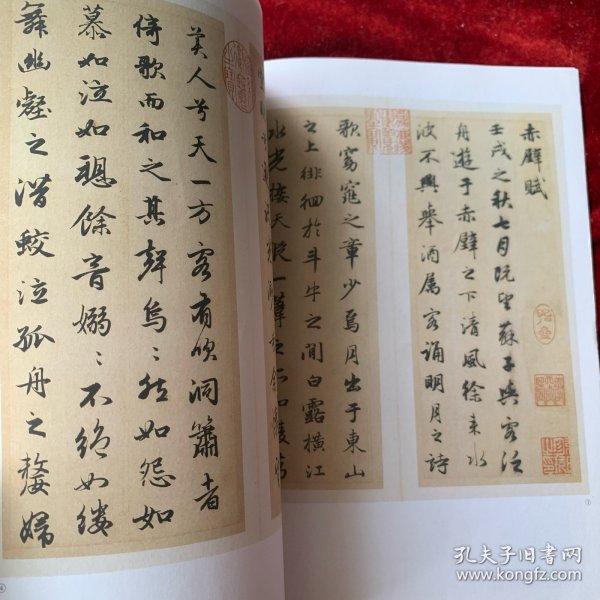 赤壁賦
壬戌之秋七月既望蘇子與客泛
舟遊于赤壁之下清風徐来水
波不興舉酒属客誦明月之詩
歌窈窕之章少焉月出于東山
之上徘徊於斗牛之間白露橫江
水光接天縱一葦之所如
美人兮天一方客有吹洞簫者
倚歌而和之其聲烏〻然如怨如
慕如泣如餘音嫋〻不絶如縷
舞幽壑之潛蛟泣孤舟之嫠婦
孔夫子旧书网
www.kongfz.com